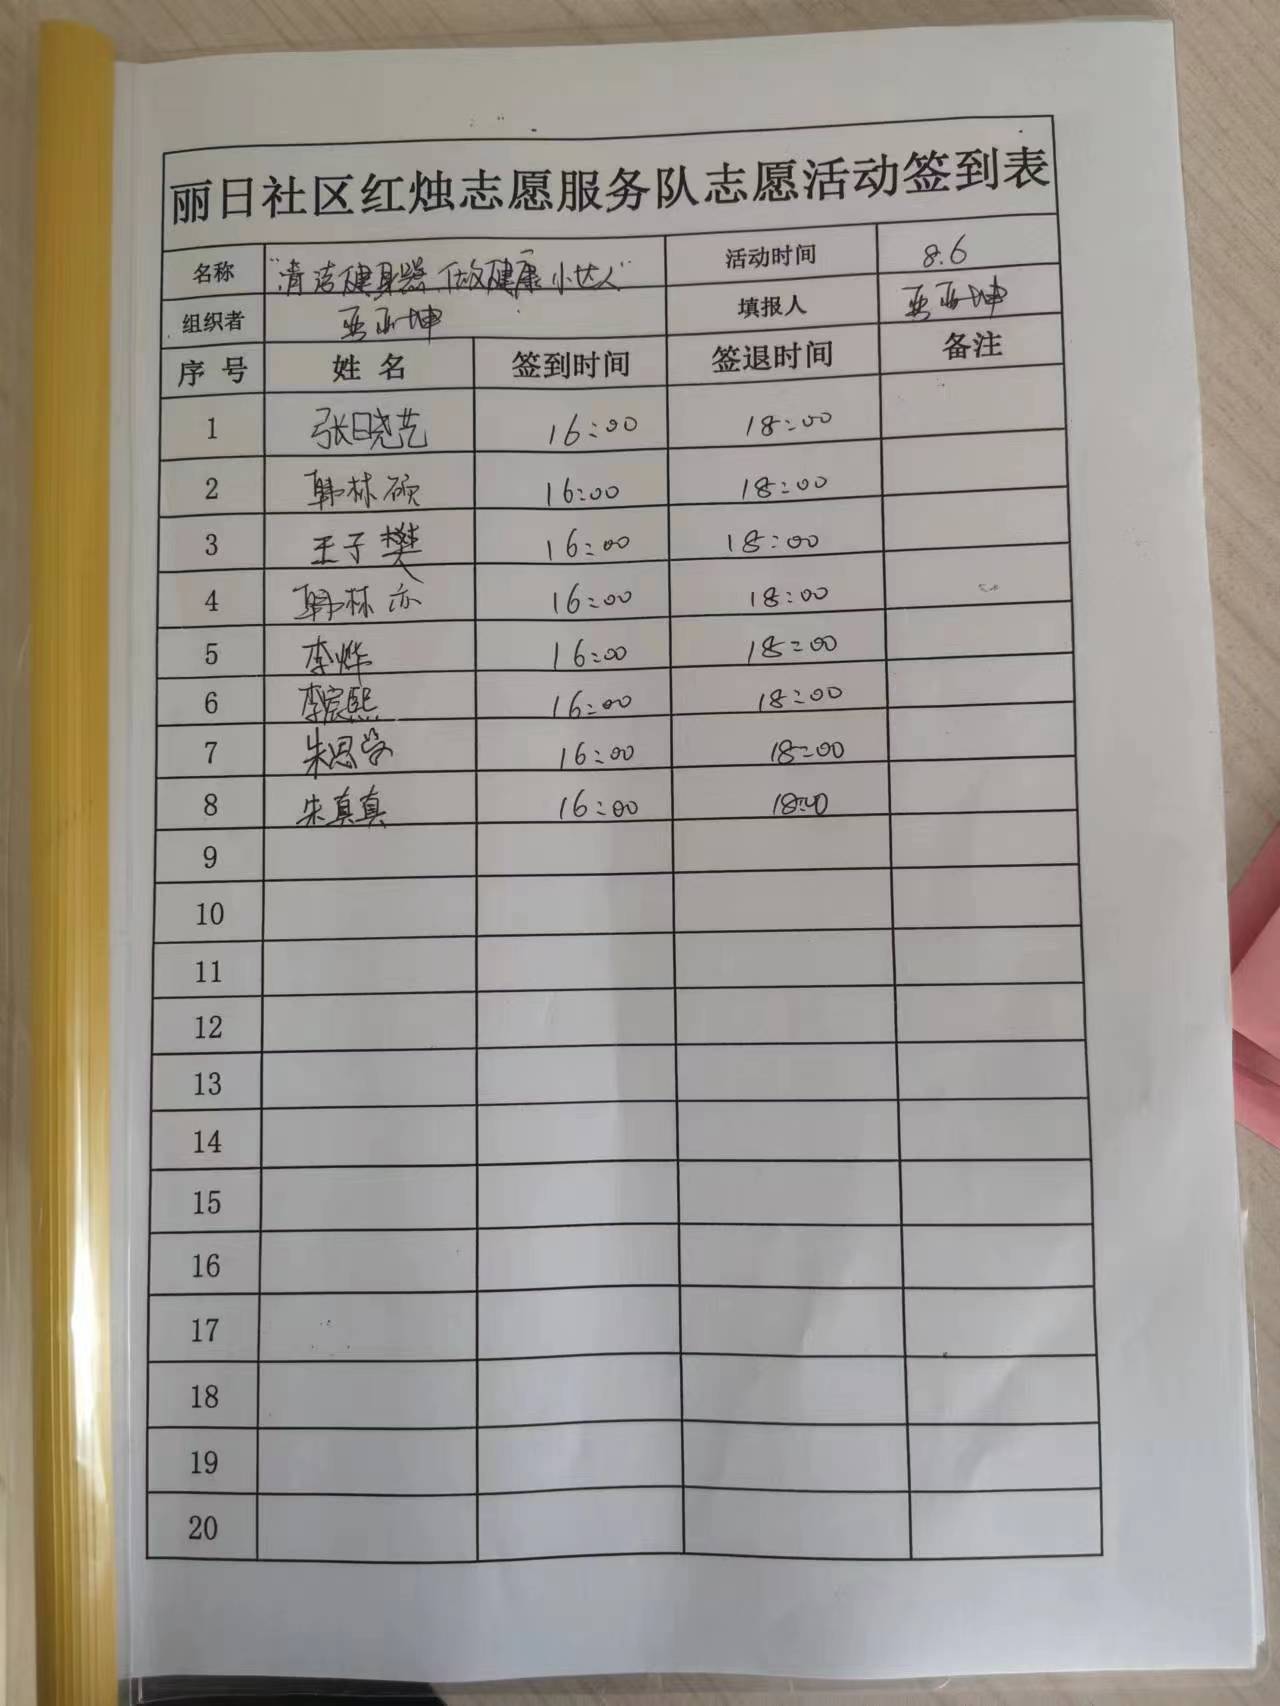 丽日社区红烛志愿服务队志愿活动签到表
名称 "清洁健身器 做健康小达人" 活动时间 8.6
组织者 填报人
序号 姓名 签到时间 签退时间 备注
1 张晓艺 16:00 18:00
2 韩林硕 16:00 18:00
3 王子樊 16:00 18:00
4 韩林亦 16:00 18:00
5 李烨 16:00 18:00
6 李宸熙 16:00 18:00
7 16:00 18:00
8 朱真真 16:00 18:00
9
10
11
12
13
14
15
16
17
18
19
20